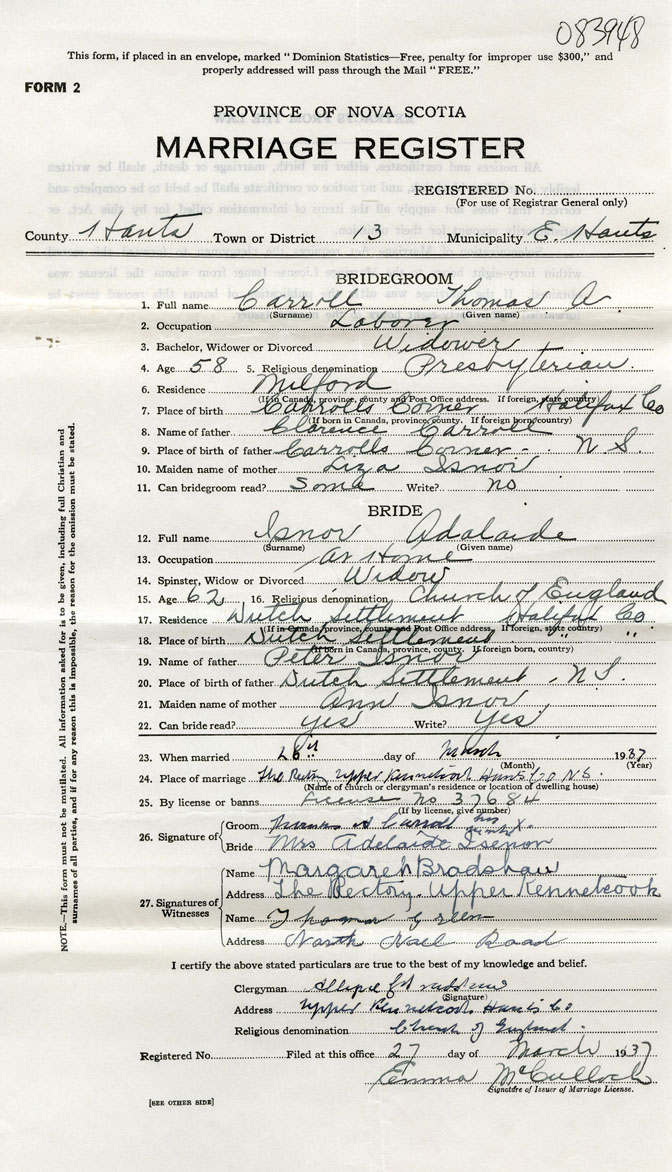 083948
This form, if placed in an envelope, marked "Dominion Statistics—Free, penalty for improper use $300," and
properly addressed will pass through the Mail "FREE."
FORM 2
PROVINCE OF NOVA SCOTIA
MARRIAGE REGISTER
REGISTERED No.
(For use of Registrar General only)
County Hants Town or District 13 Municipality E. Hants
BRIDEGROOM
1. Full name Carroll Thomas A
(Surname) (Given name)
2. Occupation Laborer
3. Bachelor, Widower or Divorced Widower
4. Age 58 5. Religious denomination Presbyterian
6. Residence Milford
(If in Canada, province, county and Post Office address. If foreign, state country)
7. Place of birth Carrolls Corner Halifax Co
(If born in Canada, province, county. If foreign born, country)
8. Name of father Clarence Carroll
9. Place of birth of father Carrolls Corner - N S.
10. Maiden name of mother Liza Isnor
11. Can bridegroom read? Some Write? no
BRIDE
12. Full name Isnor Adalaide
(Surname) (Given name)
13. Occupation At Home
14. Spinster, Widow or Divorced Widow
15. Age 62 16. Religious denomination Church of England
17. Residence Dutch Settlement Halifax Co
(If in Canada, province, county and Post Office address. If foreign, state country)
18. Place of birth Dutch Settlement " "
(If born in Canada, province, county. If foreign born, country)
19. Name of father Peter Isnor
20. Place of birth of father Dutch Settlement, N S.
21. Maiden name of mother Ann Isnor
22. Can bride read? yes Write? yes
23. When married day of March 1937
(Month) (Year)
24. Place of marriage The Rectory Upper Kennetcook Hants Co N.S.
(Name of church or clergyman's residence or location of dwelling house)
25. By license or banns License no 37684
(If by license, give number)
26. Signature of Groom Thomas A Carroll his mark X.
Bride Mrs Adelaide Isenor
27. Signatures of Witnesses
Name Margaret Bradshaw
Address The Rectory. Upper Kennetcook
Name Thomas Green
Address North Road
I certify the above stated particulars are true to the best of my knowledge and belief.
Clergyman
(Signature)
Address Upper Kennetcook Hants Co
Religious denomination Church of England.
Registered No. Filed at this office 27 day of March 1937
Emma McCulloch
Signature of Issuer of Marriage License.
[SEE OTHER SIDE]
NOTE.—This form must not be mutilated. All information asked for is to be given, including full Christian and
surnames of all parties, and if for any reason this is impossible, the reason for the omission must be stated.